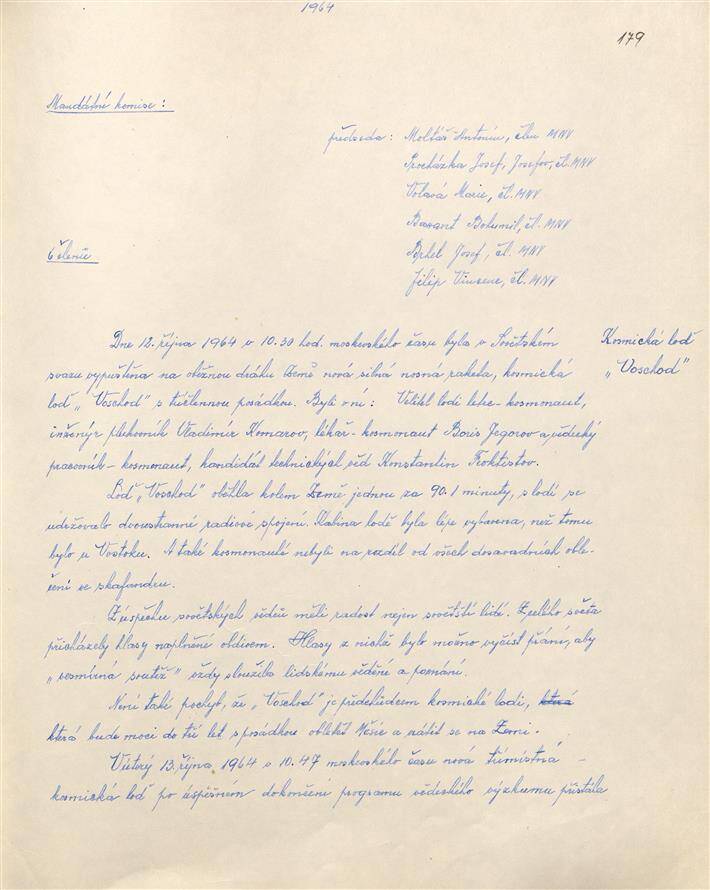 1964
179
Mandátní komise:
předseda: Moltáš Antonín, člen MNV
Procházka Josef, Josefov, čl. MNV
Volavá Marie, čl. MNV
Bohumil, čl. MNV
Členové
Josef, čl. MNV
Filip Vincenc, čl. MNV
Dne 12. října 1964 v 10.30 hod. moskevského času byla v Sovětském
Kosmická loď
svazu vypuštěna na oběžnou dráhu Země nová silná nosná raketa, kosmická
„Voschod"
loď „Voschod" s tříčlennou posádkou. Byli v ní: Velitel lodi letec-kosmonaut,
inženýr plukovník Vladimír Komarov, lékař-kosmonaut Boris Jegorov a vědecký
pracovník-kosmonaut, kandidát technických věd Konstantin Feoktistov.
Loď „Voschod" oběhla kolem Země jednou za 90.1 minuty, s lodí se
udržovalo dvoustranné radiové spojení. Kabina lodě byla lépe vybavena, než tomu
bylo u Vostoku. A také kosmonauté nebyli na rozdíl od všech dosavadních oble-
čeni ve skafandru.
Z úspěchu sovětských vědců měli radost nejen sovětští lidé. Z celého světa
přicházely hlasy naplněné obdivem. Hlasy z nichž bylo možno vyčíst přání, aby
„vesmírná soutěž" vždy sloužila lidskému vědění a poznání.
Není také pochyb, že „Voschod" je předchůdcem kosmické lodi, která
která bude moci do tří let s posádkou obletět Měsíc a vrátit se na Zemi.
V úterý 13. října 1964 v 10.47 moskevského času nová třímístná -
kosmická loď po úspěšném dokončení programu vědeckého výzkumu přistála